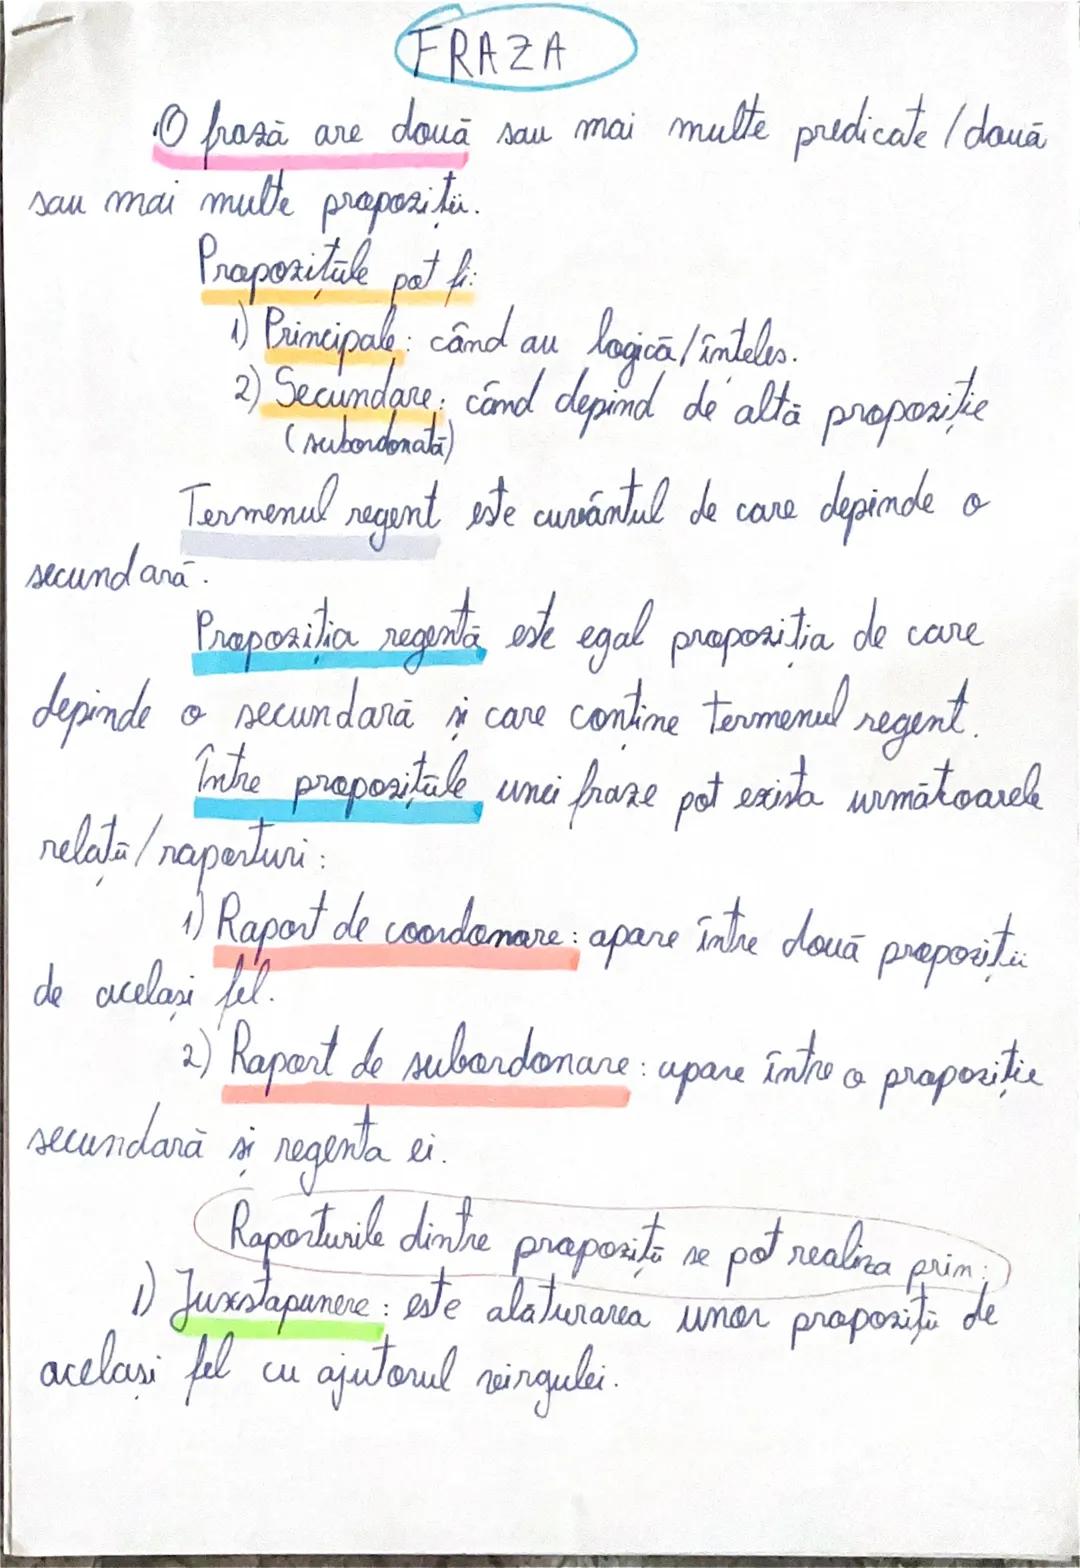 FRAZA
O frază are două sau mai multe predicate / două
sau mai multe propoziții.
Propozițiile pot fi:
1) Principale: când au logică/înțeles.
2) Secundare: când depind de altă propoziție
(subordonată)
Termenul regent este cuvântul de care depinde o
secundară.
Propoziția regentă este egal propoziția de care
depinde o secundară și care conține termenul regent.
Între propozițiile unei fraze pot exista următoarele
relații/raporturi:
1) Raport de coordonare: apare între două propoziții
de același fel.
2) Raport de subordonare: apare între o propoziție
secundară și regenta ei.
Raporturile dintre propoziții se pot realiza prin:
1) Juxstapunere: este alăturarea unor propoziții de
același fel cu ajutorul virgulei.